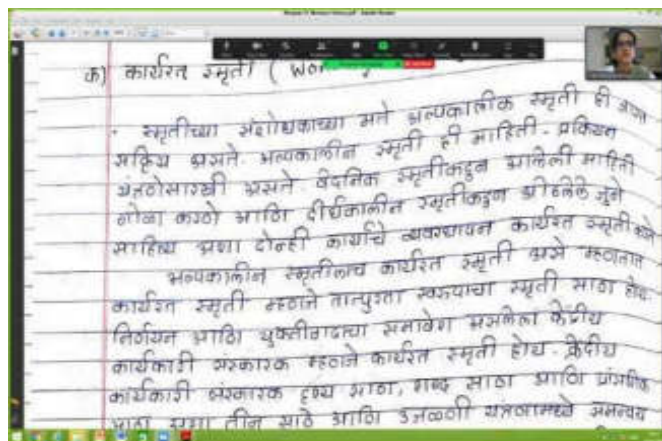 क) कार्यरत स्मृती ( Wor
स्मृतीच्या संशोधकाच्या मते अल्पकालीक स्मृती ही
सक्रिय असते. अल्पकालीन स्मृती ही माहिती - प्रक्रियन
यंत्रणेसारखी असते. वेदनिक स्मृतीकडुन आलेली माहिती
गोळा करणे आणि दीर्घकालीन स्मृतीकडुन जुने
साहित्य अशा दोन्ही कार्याचे व्यवस्थापन कार्यरत स्मृती
अल्पकालीन स्मृतीलाच कार्यरत स्मृती असे म्हणतात
कार्यरत स्मृती म्हणजे तात्पुरता स्वरुपाचा स्मृती साठा होय.
निर्णयन आणि युक्तीवादाचा समावेश असलेला केंद्रीय
कार्यकारी संस्कारक म्हणजे कार्यरत स्मृती होय. केंद्रीय
कार्यकारी संस्कारक दृश्य साठा, शब्द साठा आणि प्रासंगिक
साठा अशा तीन साठे आणि उजळणी यंत्रणामध्ये समन्वय